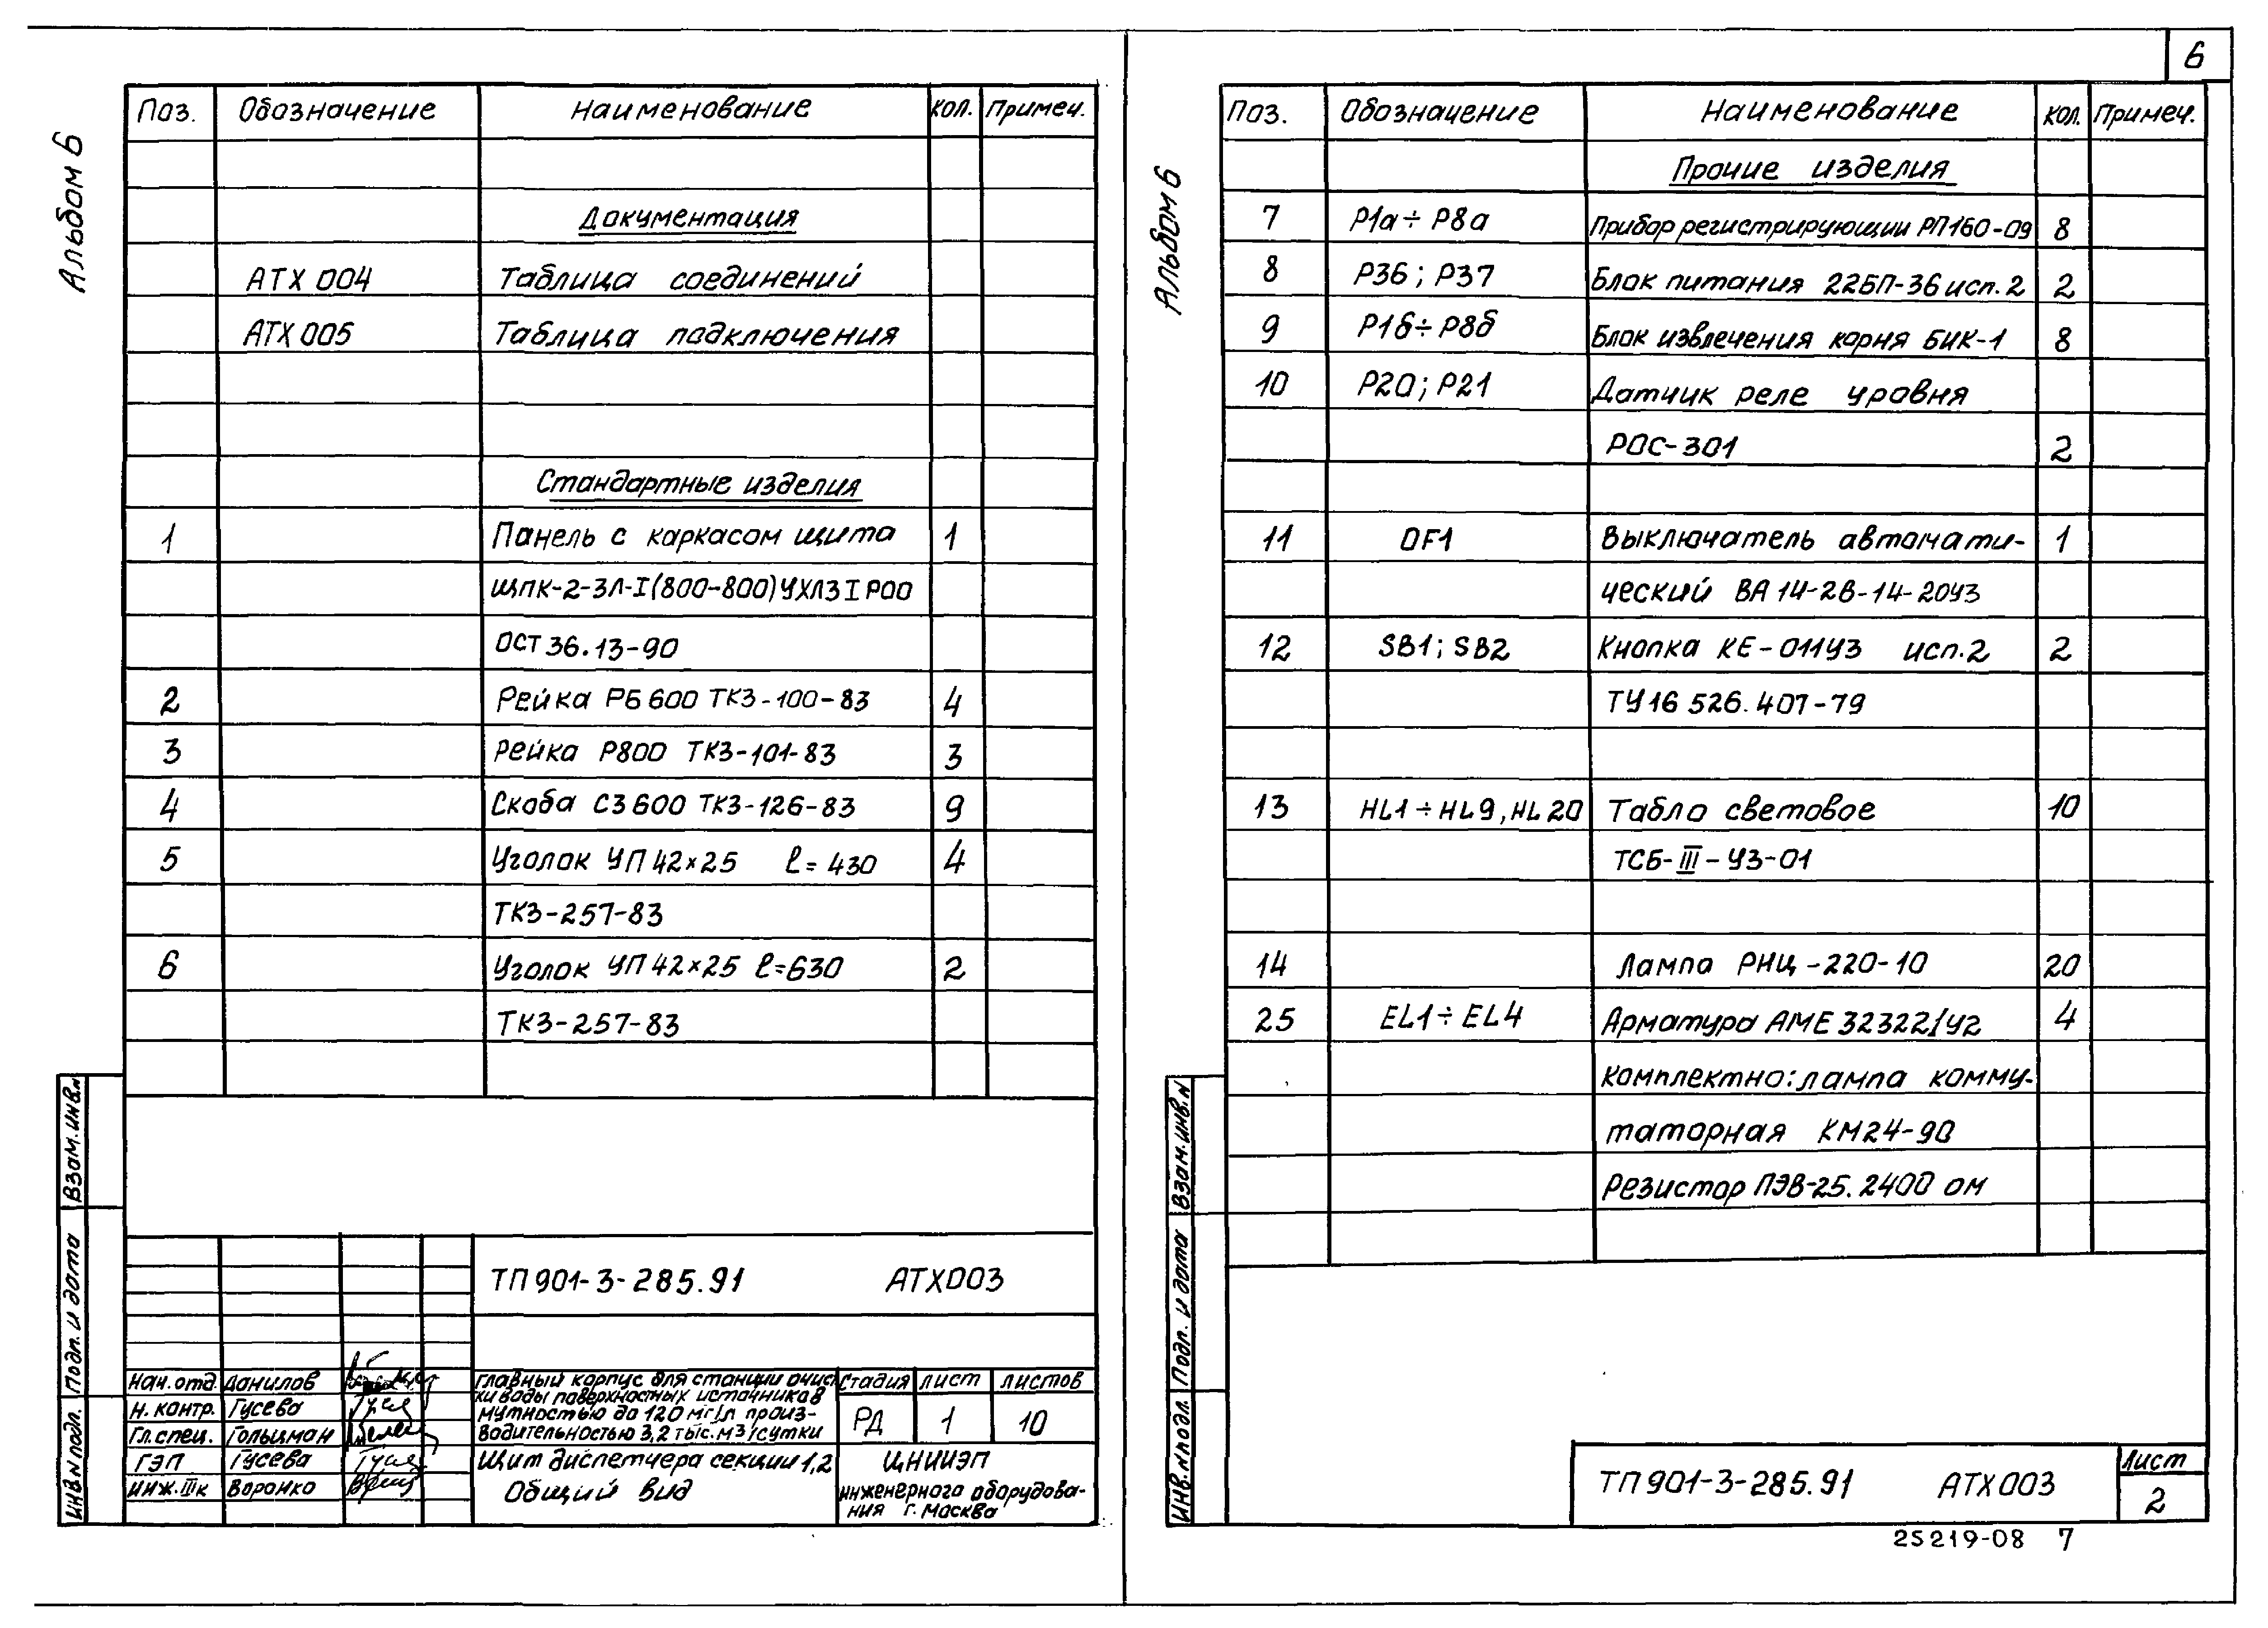 6
Альбом 6
Поз. Обозначение Наименование Кол. Примеч.
Документация
АТХ 004 Таблица соединений
АТХ 005 Таблица подключения
Стандартные изделия
1 Панель с каркасом щита 1
ЩПК-2-3Л-I(800-800)УХЛ3 IP00
ОСТ 36.13-90
2 Рейка РБ 600 ТК3-100-83 4
3 Рейка Р800 ТК3-101-83 3
4 Скоба С3 600 ТК3-126-83 9
5 Уголок УП 42×25 ℓ= 430 4
ТК3-257-83
6 Уголок УП 42×25 ℓ=630 2
ТК3-257-83
Взам.инв.N
Подп. и дата
Инв.N подл.
ТП 901-3-285.91 АТХ003
Нач.отд. Данилов
Н. контр. Гусева
Гл. спец. Гольцман
ГЭП Гусева
Инж.IIIк Воронко
Главный корпус для станции очист
ки воды поверхностных источников
мутностью до 120 мг/л произ-
водительностью 3,2 тыс.м3/сутки
Щит диспетчера секции 1,2
Общий вид
Стадия Лист Листов
РД 1 10
ЦНИИЭП
инженерного оборудова-
ния г. Москва
Альбом 6
Поз. Обозначение Наименование Кол. Примеч.
Прочие изделия
7 Р1а÷Р8а Прибор регистрирующий РП160-09 8
8 Р36; Р37 Блок питания 22БП-36 исп.2 2
9 Р1б÷Р8б Блок извлечения корня БИК-1 8
10 Р20; Р21 Датчик реле уровня
РОС-301 2
11 QF1 Выключатель автомати- 1
ческий ВА 14-26-14-20У3
12 SB1; SB2 Кнопка КЕ-011У3 исп.2 2
ТУ16 526.407-79
13 HL1÷HL9, HL20 Табло световое 10
ТСБ-III-У3-01
14 Лампа РНЦ-220-10 20
25 EL1÷EL4 Арматура АМЕ 32322/У2 4
комплектно: лампа комму-
таторная КМ24-90
Резистор ПЭВ-25. 2400 ом
Взам.инв.N
Подп. и дата
Инв.N подл.
ТП 901-3-285.91 АТХ003
Лист
2
25219-08 7